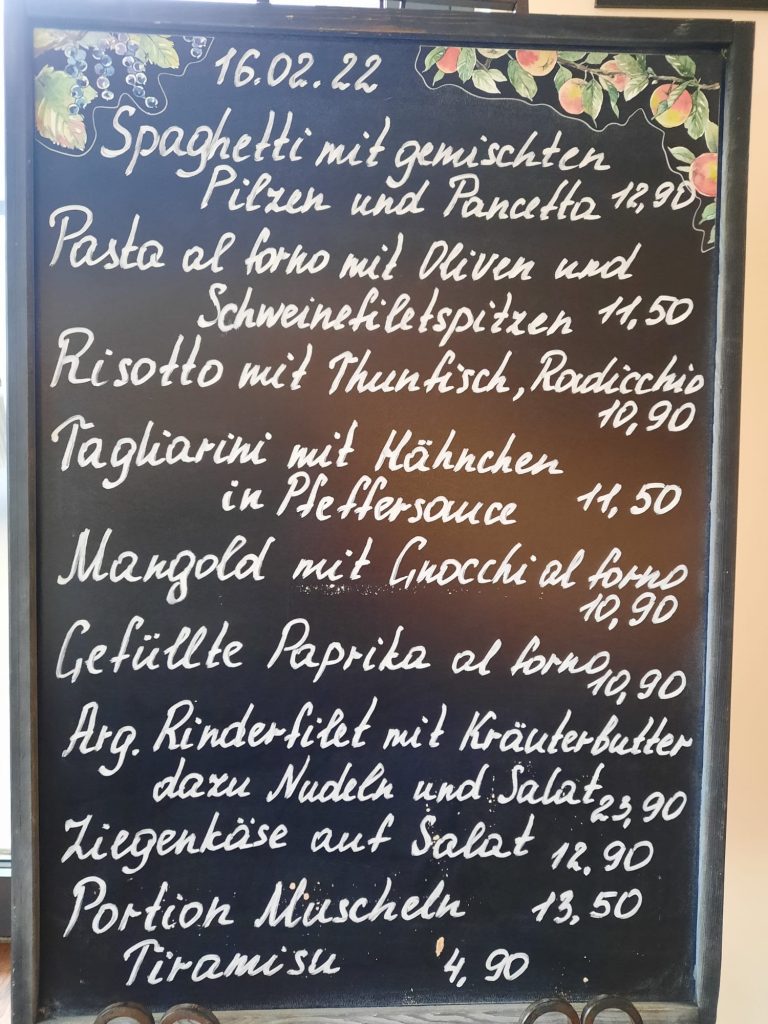 16.02.22
Spaghetti mit gemischten
Pilzen und Pancetta 12,90
Pasta al forno mit Oliven und
Schweinefiletspitzen 11,50
Risotto mit Thunfisch, Radicchio
10,90
Tagliarini mit Hähnchen
in Pfeffersauce 11,50
Mangold mit Gnocchi al forno
10,90
Gefüllte Paprika al forno 10,90
Arg. Rinderfilet mit Kräuterbutter
dazu Nudeln und Salat 23,90
Ziegenkäse auf Salat 12,90
Portion Muscheln 13,50
Tiramisu 4,90